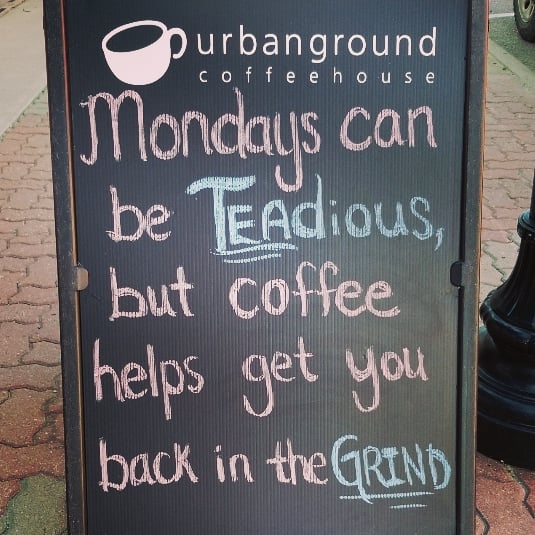 urbanground
coffeehouse
Mondays can
be TEAdious,
but coffee
helps get you
back in the GRIND